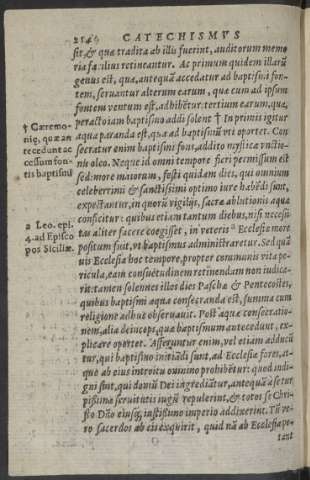 2146 CATECHISMVS
sit, & quæ tradita ab illis fuerint, auditorum memo
ria facilius retineantur. Ac primum quidem illarũ
genus est, quæ, antequã accedatur ad baptismi fon-
tem, seruantur alterum earum, quæ cum ad ipsum
fontem ventum est, adhibẽtur: tertium earum, quæ,
peracto iam baptismo addi solent † In primis igitur
† Cæremo-
aqua paranda est, quæ ad baptismũ vti oportet. Con
niæ, quæ an
secratur enim baptismi fons, addito mysticæ vnctio-
tecedunt ac
nis oleo. Neque id omni tempore fieri permissum est
cessum fon-
sed more maiorum, festi quidam dies, qui omnium
tis baptismi
celeberrimi & sanctissimi optimo iure habẽdi sunt,
expectantur, in quorũ vigilijs, sacræ ablutionis aqua
conficitur: quibus etiam tantum diebus, nisi necessi-
a Leo. epi.
tas aliter facere coegisset, in veteris a Ecclesiæ more
4. ad Episco
positum fuit, vt baptismus administraretur. Sed quã
pos Siciliæ.
uis Ecclesia hoc tempore, propter communis vitæ pe-
ricula, eam consuetudinem retinendam non iudica-
rit: tamen solennes illos dies Paschæ & Pentecostes,
quibus baptismi aqua consecranda est, summa cum
religione adhuc obseruauit. Post aquæ consecratio-
nem, alia deinceps, quæ baptismum antecedunt, ex-
plicare oportet. Afferuntur enim, vel etiam adducũ
tur, qui baptismo initiãdi sunt, ad Ecclesiæ fores, at-
que ab eius introitu omnino prohibẽtur: quod indi-
gni sint, qui domũ Dei ingrediãtur, antequã à se tur
pissimæ seruitutis iugũ repulerint, & totos se Chri-
sto Dño eiusq; iustissimo imperio addixerint. Tũ ve-
ro sacerdos ab eis exquirit, quid nã ab Ecclesia pe-
tant